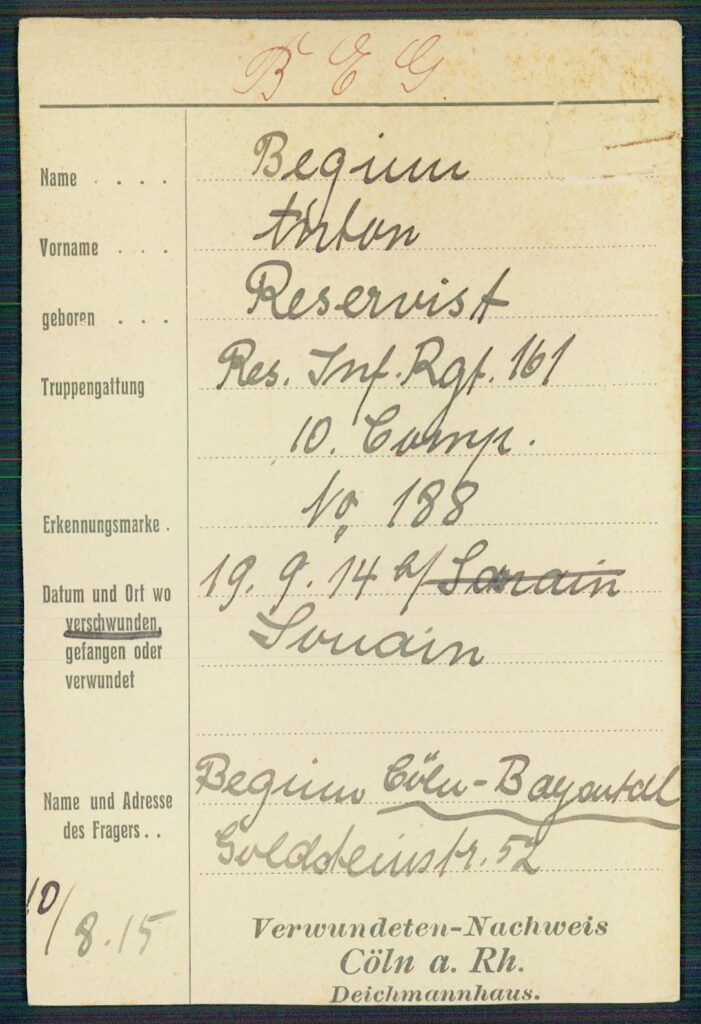 B E G
Name . . . . Beginn
Vorname . . . Anton
geboren . . . Reservist
Truppengattung Res. Inf. Rgt. 161
10. Comp.
Erkennungsmarke . No 188
Datum und Ort wo 19. 9. 14 b/ Souain
verschwunden, Souain
gefangen oder
verwundet
Beginn Cöln-Bayental
Name und Adresse
des Fragers . . Goldsteinstr. 52
10/8.15
Verwundeten-Nachweis
Cöln a. Rh.
Deichmannhaus.